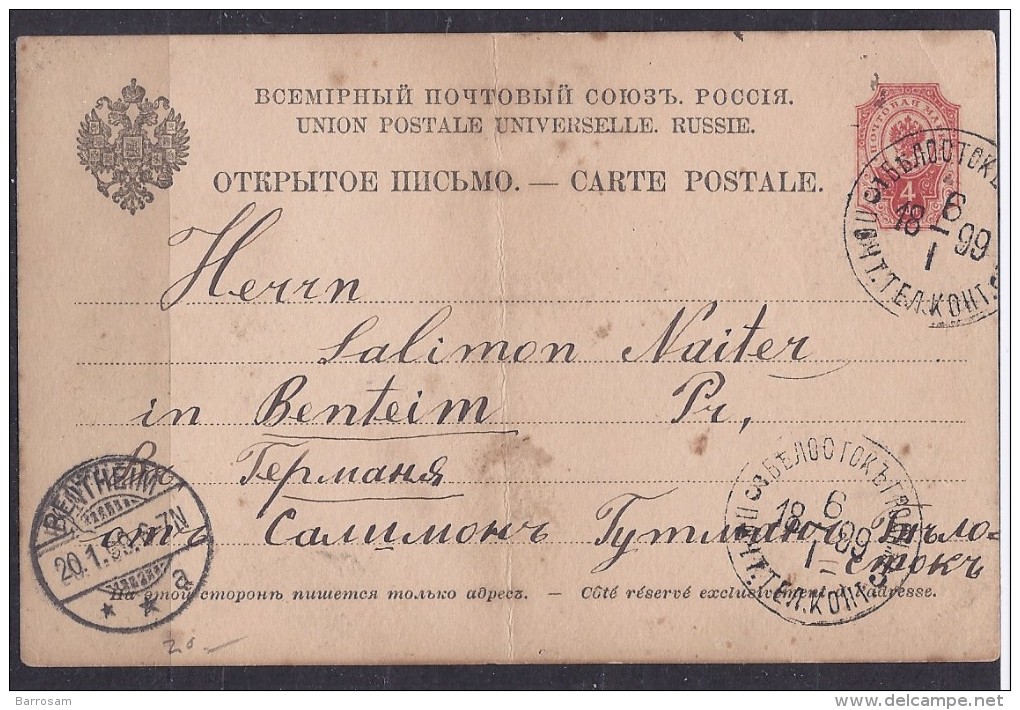 ВСЕМІРНЫЙ ПОЧТОВЫЙ СОЮЗЪ. РОССІЯ.
UNION POSTALE UNIVERSELLE. RUSSIE.
ОТКРЫТОЕ ПИСЬМО. — CARTE POSTALE.
ПОЧТОВАЯ МАРКА
4
БѢЛОСТОКЪ
6
18 – 99
I
ПОЧТ.ТЕЛ.КОНТ.
Herrn
Salimon Naiter
in Benteim Pr,
Германя
отъ Салимонъ Гутманъ Бѣло-
стокъ
BENTHEIM
20.1.99.6-7N
a
* *
БѢЛОСТОКЪ ГРОДН.
6
18 – 99
I
ПОЧТ.ТЕЛ.КОНТ.
На этой сторонѣ пишется только адресъ. — Côté réservé exclusivement à l'adresse.
20-
Barrosam
www.delcampe.net